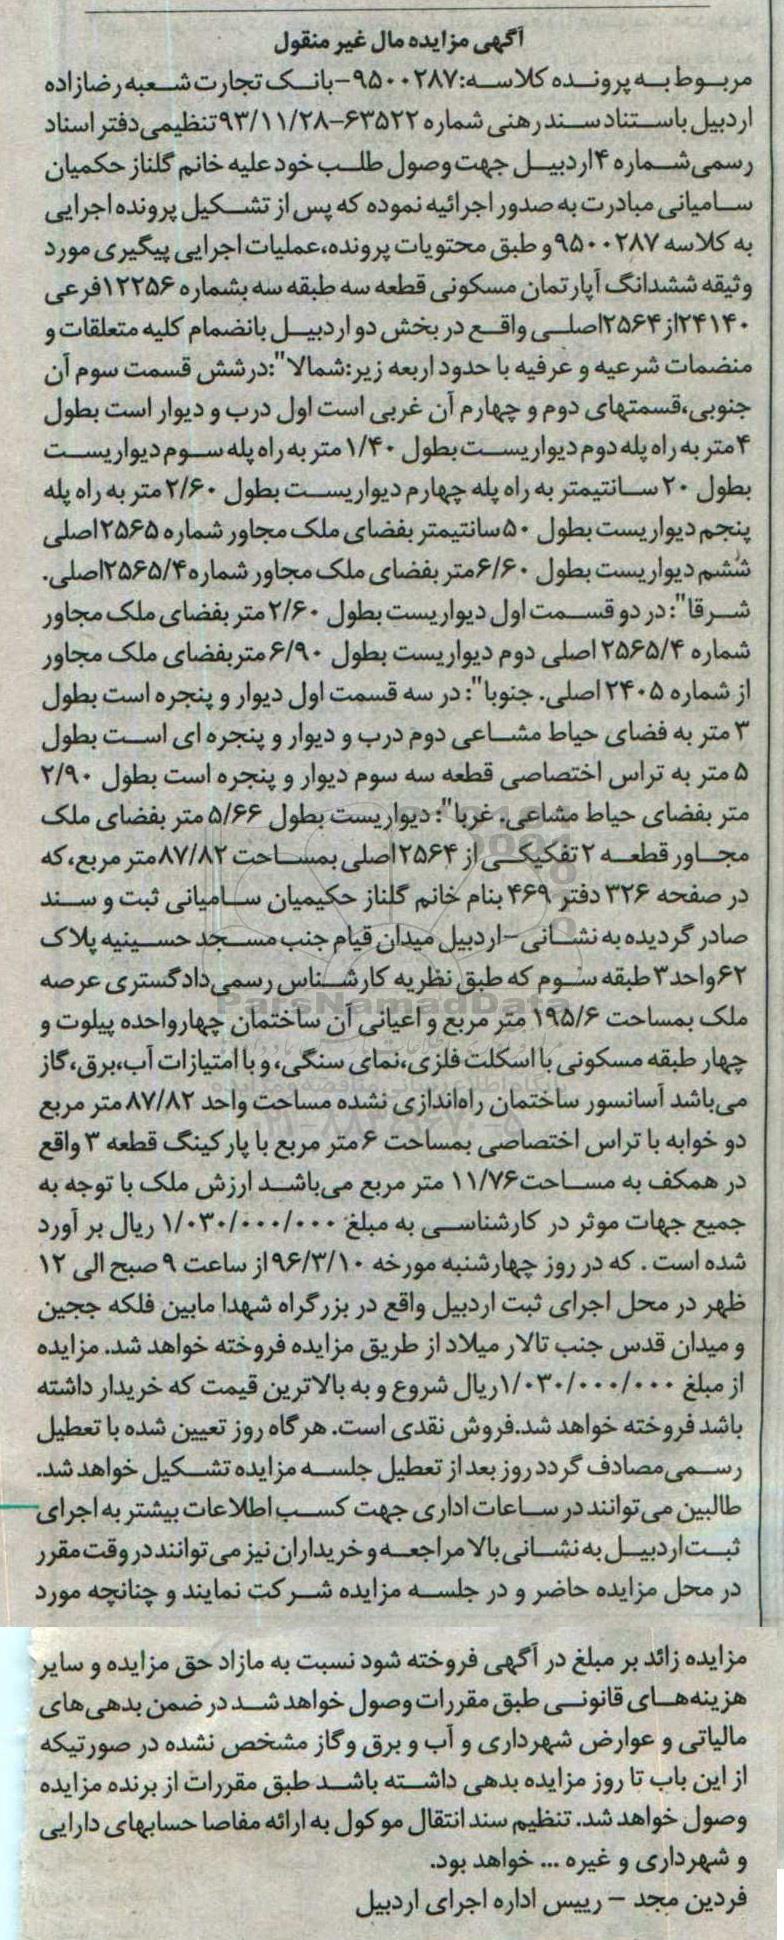 آگهی مزایده مال غیر منقول
مربوط به پرونده کلاسه:۹۵۰۰۲۸۷-بانک تجارت شعبه رضازاده
اردبیل باستناد سند رهنی شماره ۶۳۵۲۲-۹۳/۱۱/۲۸تنظیمی دفتر اسناد
رسمی شماره ۴ اردبیل جهت وصول طلب خود علیه خانم گلناز حکمیان
سامیانی مبادرت به صدور اجرائیه نموده که پس از تشکیل پرونده اجرایی
به کلاسه ۹۵۰۰۲۸۷ و طبق محتویات پرونده،عملیات اجرایی پیگیری مورد
وثیقه ششدانگ آپارتمان مسکونی قطعه سه طبقه سه بشماره ۱۲۲۵۶فرعی
۲۴۱۴۰از۲۵۶۴اصلی واقع در بخش دو اردبیل بانضمام کلیه متعلقات و
منضمات شرعیه و عرفیه با حدود اربعه زیر:شمالا":درشش قسمت سوم آن
جنوبی،قسمتهای دوم و چهارم آن غربی است اول درب و دیوار است بطول
۴ متر به راه پله دوم دیواریست بطول ۱/۴۰ متر به راه پله سوم دیواریست
بطول ۲۰ سانتیمتر به راه پله چهارم دیواریست بطول ۲/۶۰ متر به راه پله
پنجم دیواریست بطول ۵۰سانتیمتر بفضای ملک مجاور شماره ۲۵۶۵اصلی
ششم دیواریست بطول ۶/۶۰متر بفضای ملک مجاور شماره۲۵۶۵/۴اصلی.
شرقا": در دو قسمت اول دیواریست بطول ۲/۶۰ متر بفضای ملک مجاور
شماره ۲۵۶۵/۴ اصلی دوم دیواریست بطول ۶/۹۰ متربفضای ملک مجاور
از شماره ۲۴۰۵ اصلی. جنوبا": در سه قسمت اول دیوار و پنجره است بطول
۳ متر به فضای حیاط مشاعی دوم درب و دیوار و پنجره ای است بطول
۵ متر به تراس اختصاصی قطعه سه سوم دیوار و پنجره است بطول ۲/۹۰
متر بفضای حیاط مشاعی. غربا": دیواریست بطول ۵/۶۶ متر بفضای ملک
مجاور قطعه ۲ تفکیکی از ۲۵۶۴اصلی بمساحت ۸۷/۸۲متر مربع،که
در صفحه ۳۲۶ دفتر ۴۶۹ بنام خانم گلناز حکیمیان سامیانی ثبت و سند
صادر گردیده به نشانی-اردبیل میدان قیام جنب مسجد حسینیه پلاک
۶۲واحد۳ طبقه سوم که طبق نظریه کارشناس رسمی‌دادگستری عرصه
ملک بمساحت ۱۹۵/۶ متر مربع و اعیانی آن ساختمان چهارواحده پیلوت و
چهار طبقه مسکونی با اسکلت فلزی،نمای سنگی، و با امتیازات آب،برق،گاز
می‌باشد آسانسور ساختمان راه‌اندازی نشده مساحت واحد ۸۷/۸۲ متر مربع
دو خوابه با تراس اختصاصی بمساحت ۶متر مربع با پارکینگ قطعه ۳ واقع
در همکف به مساحت۱۱/۷۶ متر مربع می‌باشد ارزش ملک با توجه به
جمیع جهات موثر در کارشناسی به مبلغ ۱/۰۳۰/۰۰۰/۰۰۰ ریال بر آورد
شده است . که در روز چهارشنبه مورخه ۹۶/۳/۱۰از ساعت ۹ صبح الی ۱۲
ظهر در محل اجرای ثبت اردبیل واقع در بزرگراه شهدا مابین فلکه ججین
و میدان قدس جنب تالار میلاد از طریق مزایده فروخته خواهد شد. مزایده
از مبلغ ۱/۰۳۰/۰۰۰/۰۰۰ریال شروع و به بالاترین قیمت که خریدار داشته
باشد فروخته خواهد شد.فروش نقدی است. هرگاه روز تعیین شده با تعطیل
رسمی‌مصادف گردد روز بعد از تعطیل جلسه مزایده تشکیل خواهد شد.
طالبین می‌توانند در ساعات اداری جهت کسب اطلاعات بیشتر به اجرای
ثبت اردبیل به نشانی بالا مراجعه و خریداران نیز می‌توانند در وقت مقرر
در محل مزایده حاضر و در جلسه مزایده شرکت نمایند و چنانچه مورد
مزایده زائد بر مبلغ در آگهی فروخته شود نسبت به مازاد حق مزایده و سایر
هزینه‌های قانونی طبق مقررات وصول خواهد شد در ضمن بدهی‌های
مالیاتی و عوارض شهرداری و آب و برق وگاز مشخص نشده در صورتیکه
از این باب تا روز مزایده بدهی داشته باشد طبق مقررات از برنده مزایده
وصول خواهد شد. تنظیم سند انتقال موکول به ارائه مفاصا حسابهای دارایی
و شهرداری و غیره ... خواهد بود.
فردین مجد - رییس اداره اجرای اردبیل
ParsNamadData